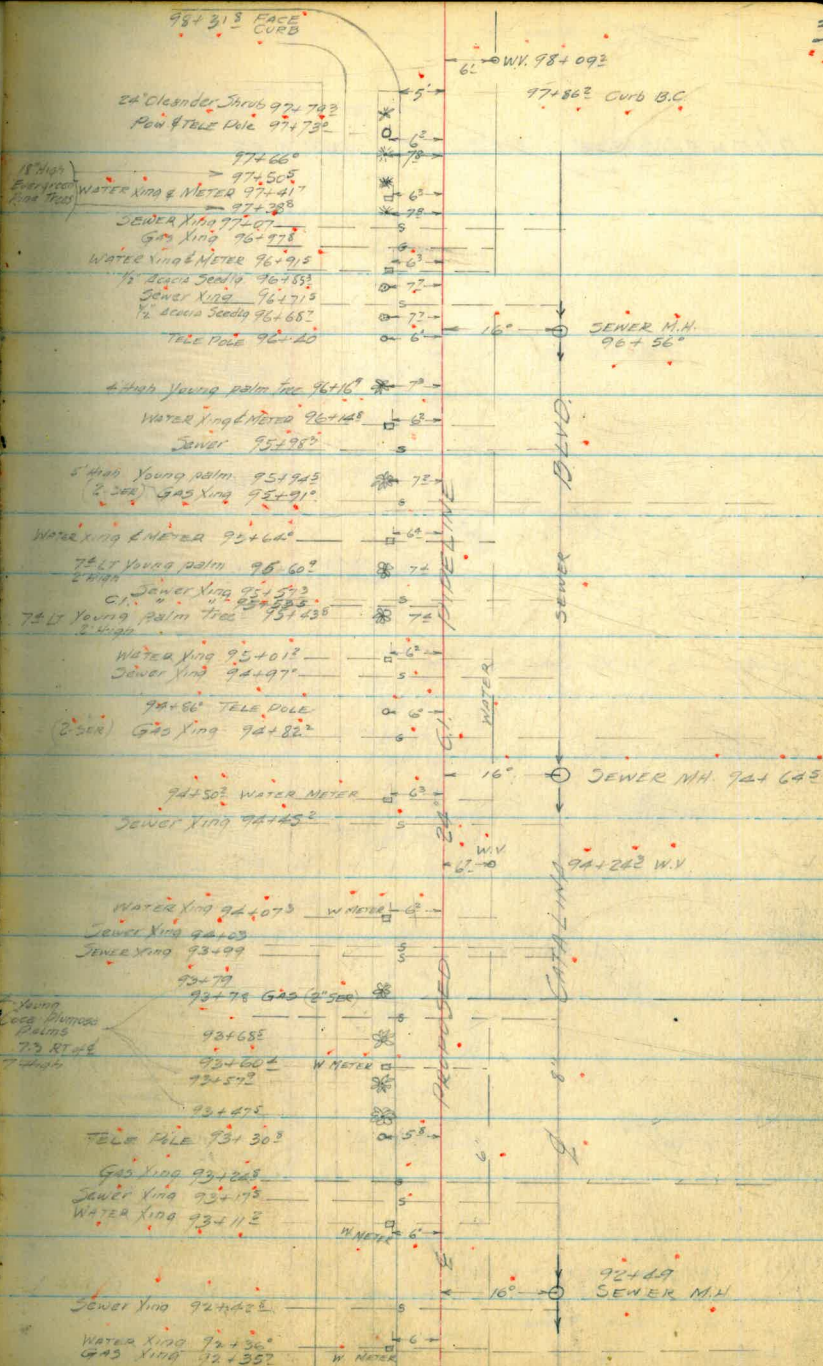 98+31⁸ FACE
CURB
6' W.V. 98+09²
5'
97+86² Curb B.C.
24" Oleander Shrub 97+79³
Pow & TELE Pole 97+73⁰
6²
97+66⁰
7⁸
97+50⁵
18" High
Evergreen
WATER Xing & METER 97+41⁷
6³
97+38⁸
7⁸
SEWER Xing 97+07
S
GAS Xing 96+97⁸
G
WATER Xing & METER 96+91⁵
6³
½" Acacia Seedlg 96+85³
7⁷
Sewer Xing 96+71⁵
S
½" Acacia Seedlg 96+68²
7⁷
TELE POLE 96+40
6'
16⁰
SEWER M.H.
96+56⁰
4' High Young palm tree 96+16⁹
7³
WATER Xing & METER 96+14⁸
6²
Sewer 95+98³
S
5' High Young palm 95+94⁵
7²
(2-SER) GAS Xing 95+91⁰
WATER Xing & METER 95+64⁰
6⁴
7⁴ LT Young palm 95+60⁹
2' High
7⁴
Sewer Xing 95+57³
S
C.I. " "
7⁴ LT Young palm tree 95+43⁸
2' High
7⁴
WATER Xing 95+01²
6²
Sewer Xing 94+97⁰
S
94+86⁰ TELE POLE
6⁰
(2-SER) GAS Xing 94+82²
G
16⁰
SEWER M.H. 94+64⁵
94+50² WATER METER
6³
Sewer Xing 94+45²
S
W.V.
6²
94+24² W.V
WATER Xing 94+07³ W METER
6²
Sewer Xing 94+03
S
SEWER Xing 93+99
S
93+79
93+78 GAS (2"SER)
S
Young
Cocos Plumosa
Palms
7.3 RT of ℄
7' High
93+68⁵
93+60⁴ W METER
93+57⁹
93+47⁵
TELE POLE 93+30³
5⁸
GAS Xing 93+24⁸
G
Sewer Xing 93+17⁵
S
WATER Xing 93+11²
W METER
6⁰
16⁰
92+49
SEWER M.H
Sewer Xing 92+42⁵
S
WATER Xing 92+36⁰
6
GAS Xing 92+35²
W. METER
℄ PROPOSED 24" C.I. PIPELINE
6" WATER
℄ 8" CATALINA SEWER BLVD.